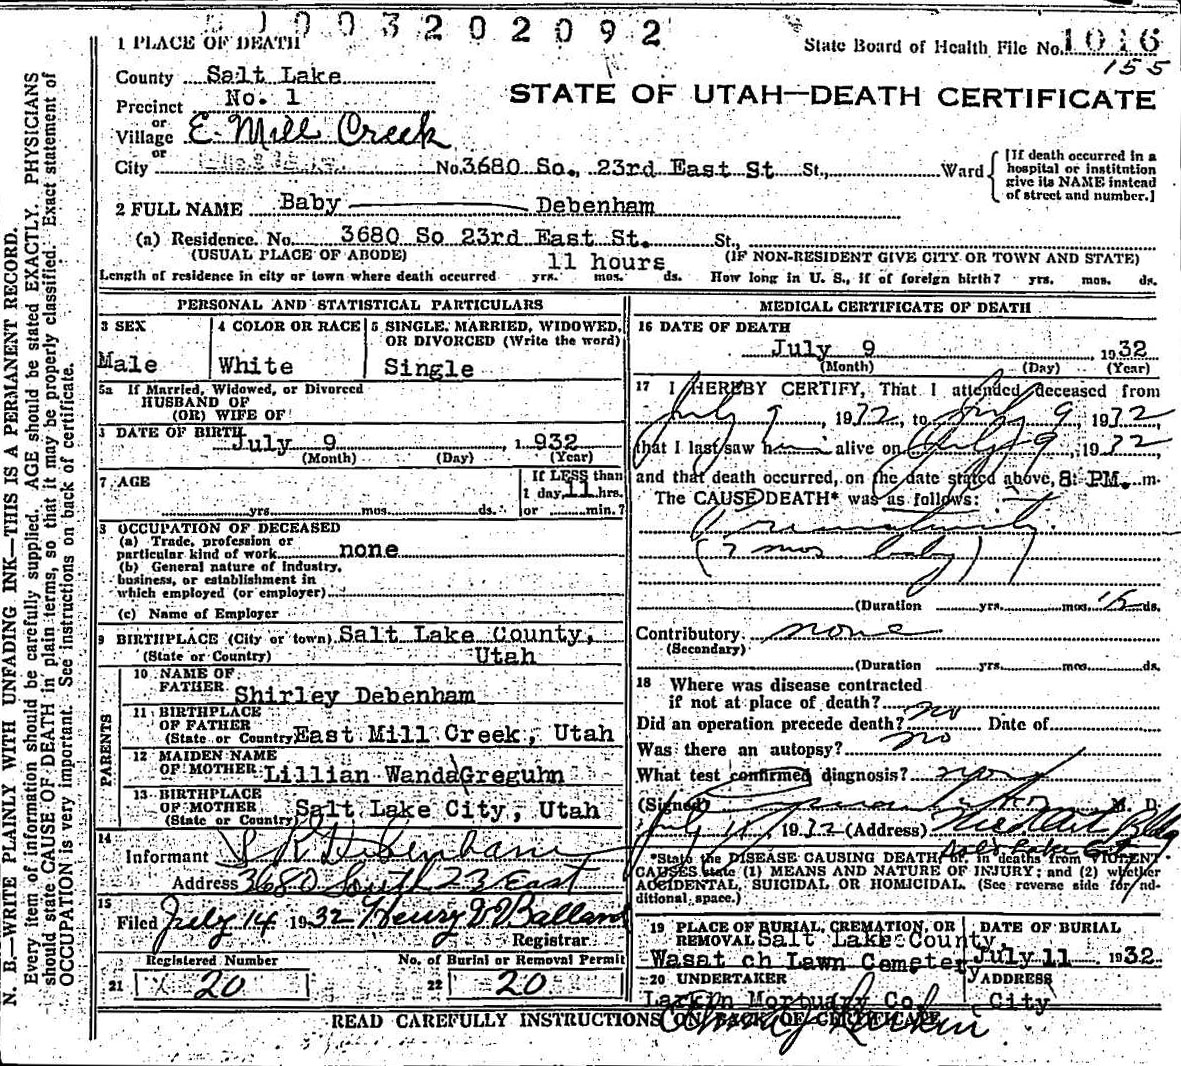 1003202092
State Board of Health File No. 1016
155
1 PLACE OF DEATH
County Salt Lake
STATE OF UTAH—DEATH CERTIFICATE
Precinct No. 1
or
Village E. Mill Creek
or
City No. 3680 So., 23rd East St St., Ward
[If death occurred in a hospital or institution give its NAME instead of street and number.]
2 FULL NAME Baby Debenham
(a) Residence. No. 3680 So 23rd East St. St.,
(USUAL PLACE OF ABODE) (IF NON-RESIDENT GIVE CITY OR TOWN AND STATE)
11 hours
Length of residence in city or town where death occurred yrs. mos. ds. How long in U. S., if of foreign birth? yrs. mos. ds.
PERSONAL AND STATISTICAL PARTICULARS
3 SEX
Male
4 COLOR OR RACE
White
5 SINGLE, MARRIED, WIDOWED, OR DIVORCED (Write the word)
Single
5a If Married, Widowed, or Divorced
HUSBAND OF
(OR) WIFE OF
DATE OF BIRTH
July 9, 1932
(Month) (Day) (Year)
7 AGE
If LESS than
1 day, 11 hrs.
yrs. mos. ds. or min.?
8 OCCUPATION OF DECEASED
(a) Trade, profession or
particular kind of work none
(b) General nature of Industry,
business, or establishment in
which employed (or employer)
(c) Name of Employer
9 BIRTHPLACE (City or town) Salt Lake County,
(State or Country) Utah
PARENTS
10 NAME OF
FATHER Shirley Debenham
11 BIRTHPLACE
OF FATHER
(State or Country) East Mill Creek, Utah
12 MAIDEN NAME
OF MOTHER Lillian Wanda Greguhn
13 BIRTHPLACE
OF MOTHER
(State or Country) Salt Lake City, Utah
14
Informant S R Debenham
Address 3680 South 23 East
15
Filed July 14 1932 Henry D Balland
Registrar
Registered Number No. of Burial or Removal Permit
21 20 22 20
MEDICAL CERTIFICATE OF DEATH
16 DATE OF DEATH
July 9, 1932
(Month) (Day) (Year)
17 I HEREBY CERTIFY, That I attended deceased from
July 9, 1932, to July 9 1932,
that I last saw him alive on July 9, 1932
and that death occurred, on the date stated above, 8: PM. m.
The CAUSE DEATH* was as follows:
Prematurity.
(7 mos baby)
(Duration yrs. mos. 1/2 ds.
Contributory none
(Secondary)
(Duration yrs. mos. ds.
18 Where was disease contracted
if not at place of death?
Did an operation precede death? no Date of
Was there an autopsy? no
What test confirmed diagnosis?
(Signed) M. D.
July 11, 1932 (Address) Med Arts Bldg
Salt Lake City
*State the DISEASE CAUSING DEATH, or, in deaths from VIOLENT
CAUSES state (1) MEANS AND NATURE OF INJURY; and (2) whether
ACCIDENTAL, SUICIDAL OR HOMICIDAL. (See reverse side for ad-
ditional space.)
19 PLACE OF BURIAL, CREMATION, OR
REMOVAL Salt Lake County,
Wasatch Lawn Cemetery
DATE OF BURIAL
July 11 1932
20 UNDERTAKER
Larkin Mortuary Co.
ADDRESS
City
READ CAREFULLY INSTRUCTIONS ON BACK OF CERTIFICATE
Larkin
N. B.—WRITE PLAINLY WITH UNFADING INK—THIS IS A PERMANENT RECORD.
Every item of information should be carefully supplied. AGE should be stated EXACTLY. PHYSICIANS
should state CAUSE OF DEATH in plain terms, so that it may be properly classified. Exact statement of
OCCUPATION is very important. See instructions on back of certificate.